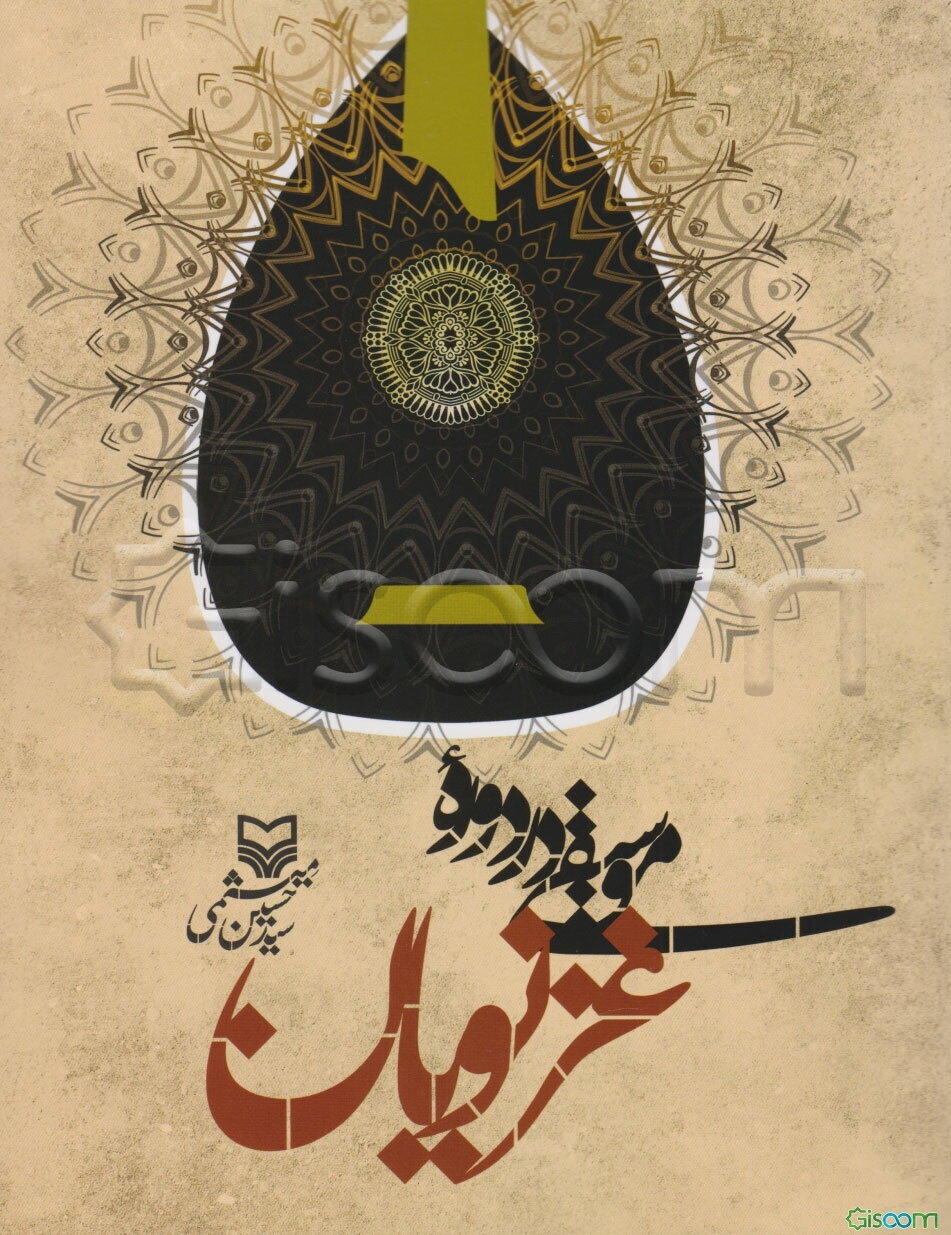 Gisoom
موسیقی در دورهٔ
غزنویان
سید حسین میثمی
Gisoom